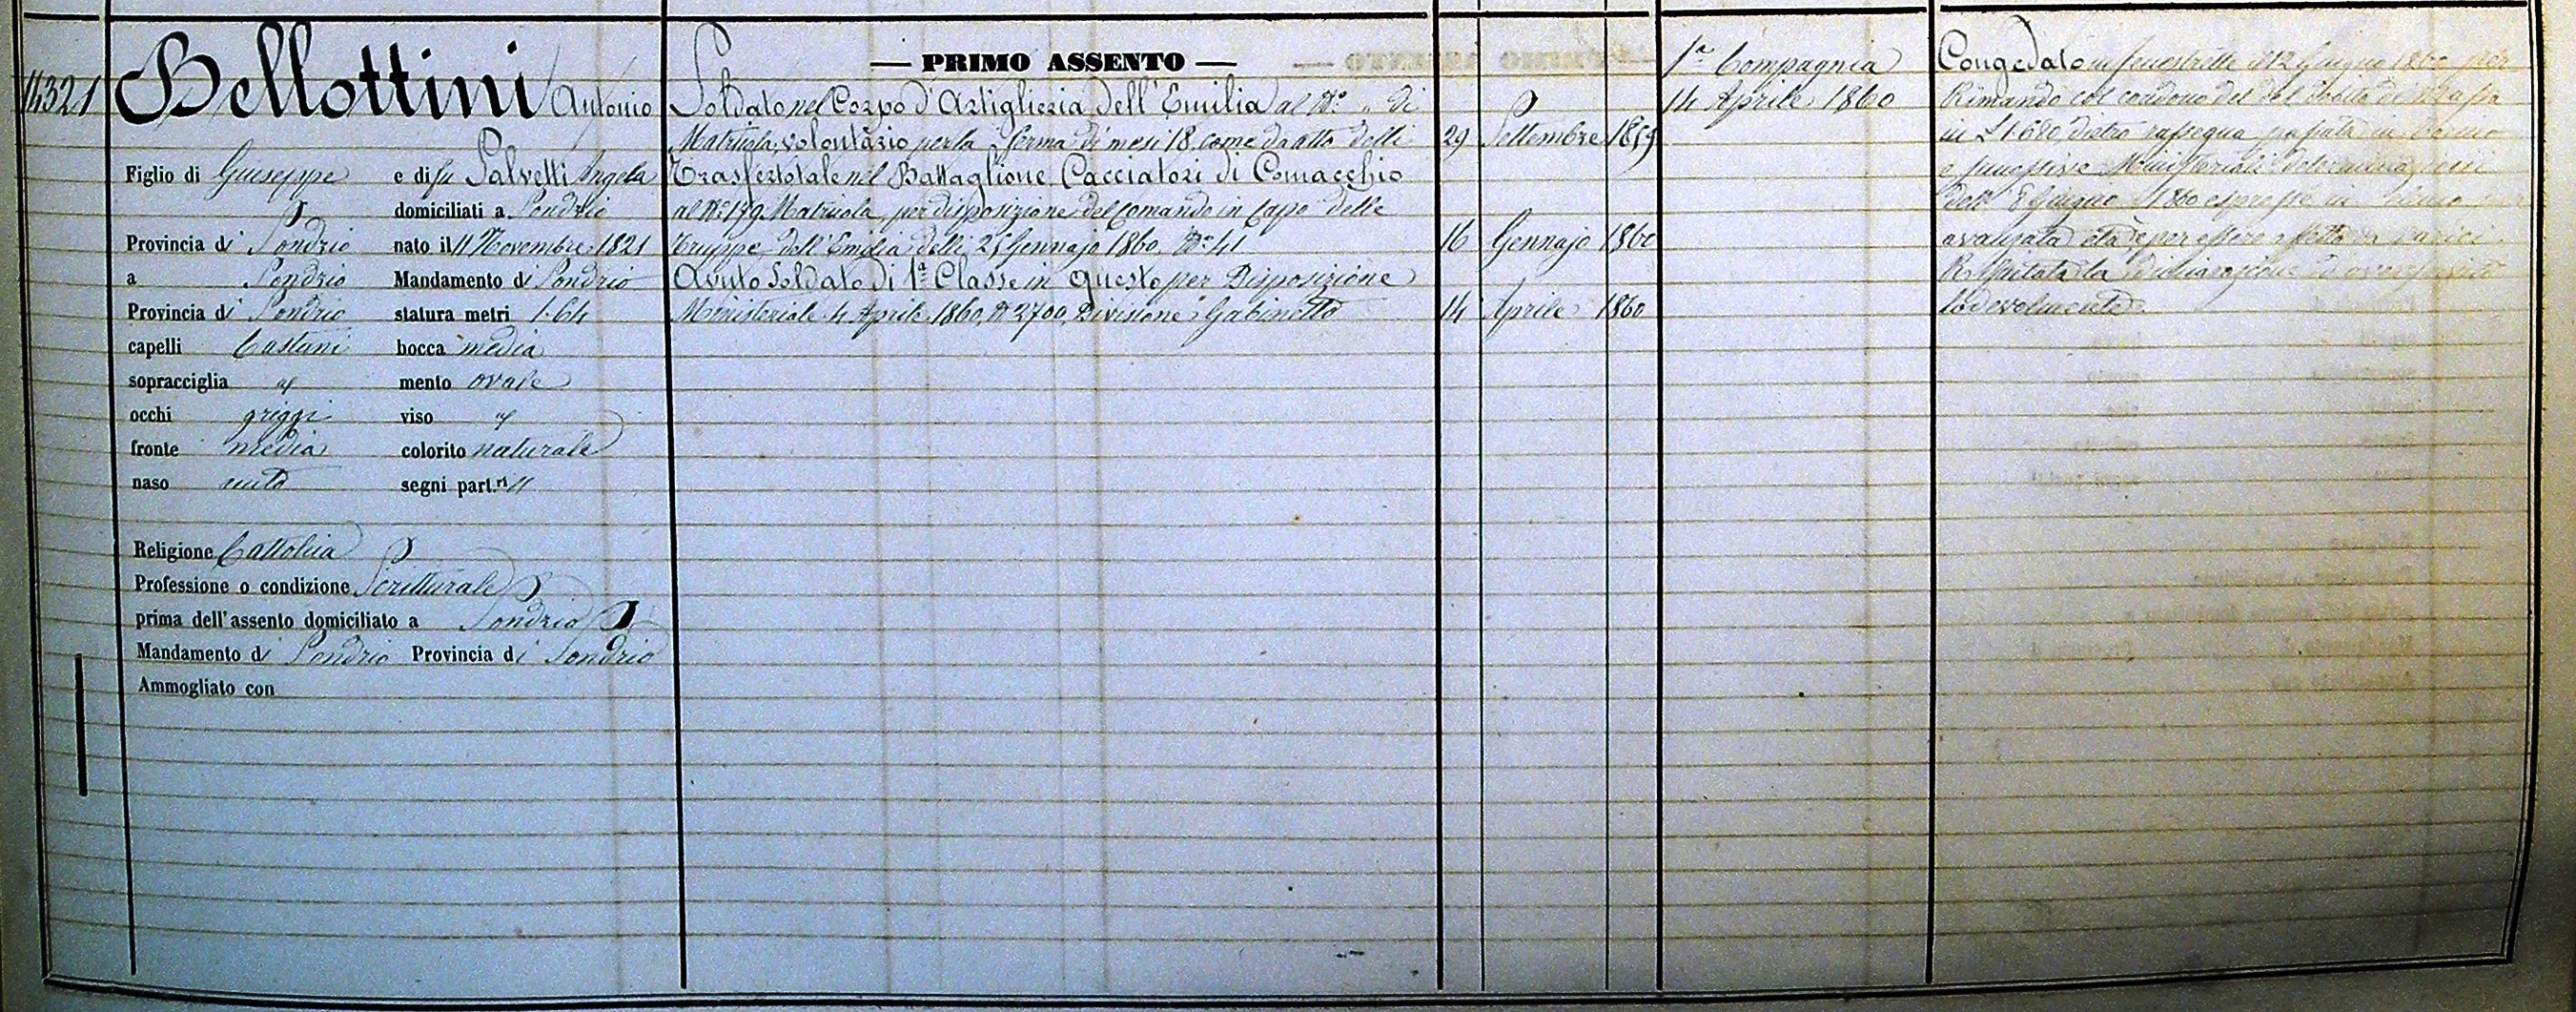 14321
Bellottini Antonio
Figlio di Giuseppe e di fu Salvetti Angela
domiciliati a Sondrio
Provincia di Sondrio nato il 11 Novembre 1821
a Sondrio Mandamento di Sondrio
Provincia di Sondrio statura metri 1.64
capelli Castani bocca media
sopracciglia id mento ovale
occhi griggi viso id
fronte media colorito naturale
naso segni part.ri //
Religione Cattolica
Professione o condizione Scritturale
prima dell'assento domiciliato a Sondrio
Mandamento di Sondrio Provincia di Sondrio
Ammogliato con
— PRIMO ASSENTO —
Soldato nel Corpo d'Artiglieria dell'Emilia al No. " di
Matricola, volontario per la ferma di mesi 18, come da atto delli 29 Settembre 1859
Trasferto tale nel Battaglione Cacciatori di Comacchio
al No. 179 Matricola, per disposizione del Comando in Capo delle
Truppe dell'Emilia delli 25 Gennajo 1860. No. 41 16 Gennajo 1860
Avuto Soldato di 1a. Classe in questo per Disposizione
Ministeriale 4 Aprile 1860, No. 2700, Divisione Gabinetto 14 Aprile 1860
1a. Compagnia
14 Aprile 1860
Congedato in Fenestrelle il 12 Giugno 1860 per
Rimando col condono del debito di massa
in £ 1.680, dietro rassegna passata in
e Ministeriali determinazioni
dell' 8 Giugno 1860 espresse in
avanzata età e per essere affetto da varici.
Rifiutata la dichiarazione d'aver servito
lodevolmente.